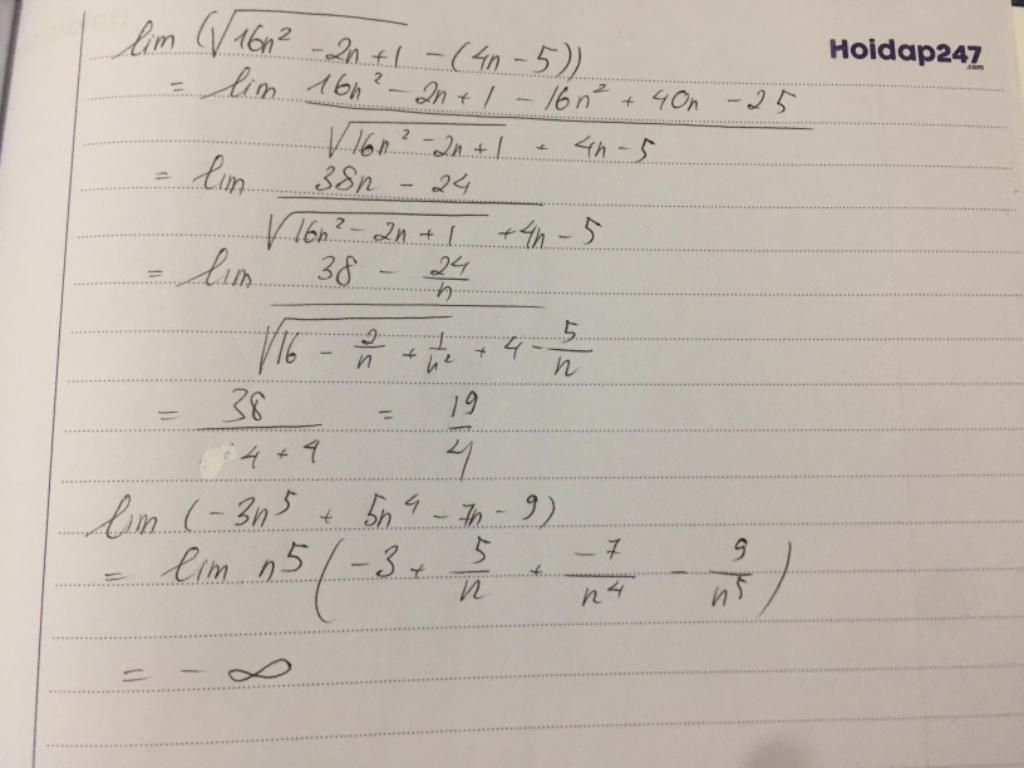 lim (√16n² - 2n + 1 - (4n - 5))
Hoidap247
.com
= lim 16n² - 2n + 1 - 16n² + 40n - 25
√16n² - 2n + 1 + 4n - 5
= lim 38n - 24
√16n² - 2n + 1 + 4n - 5
= lim 38 - 24/n
√16 - 2/n + 1/n² + 4 - 5/n
= 38 = 19
4 + 4 4
lim (-3n⁵ + 5n⁴ - 7n - 9)
= lim n5 (-3 + 5/n + -7/n⁴ - 9/n⁵)
= - ∞